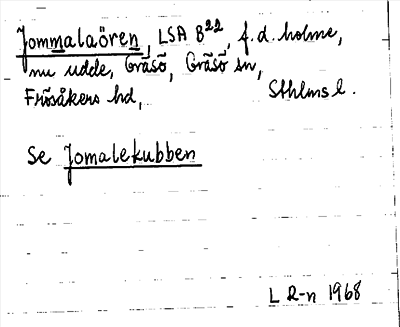 Jommalaören, LSA B²², f.d. holme,
nu udde, Gräsö, Gräsö sn,
Frösåkers hd, Sthlms l.
Se Jomalekubben
L R-n 1968